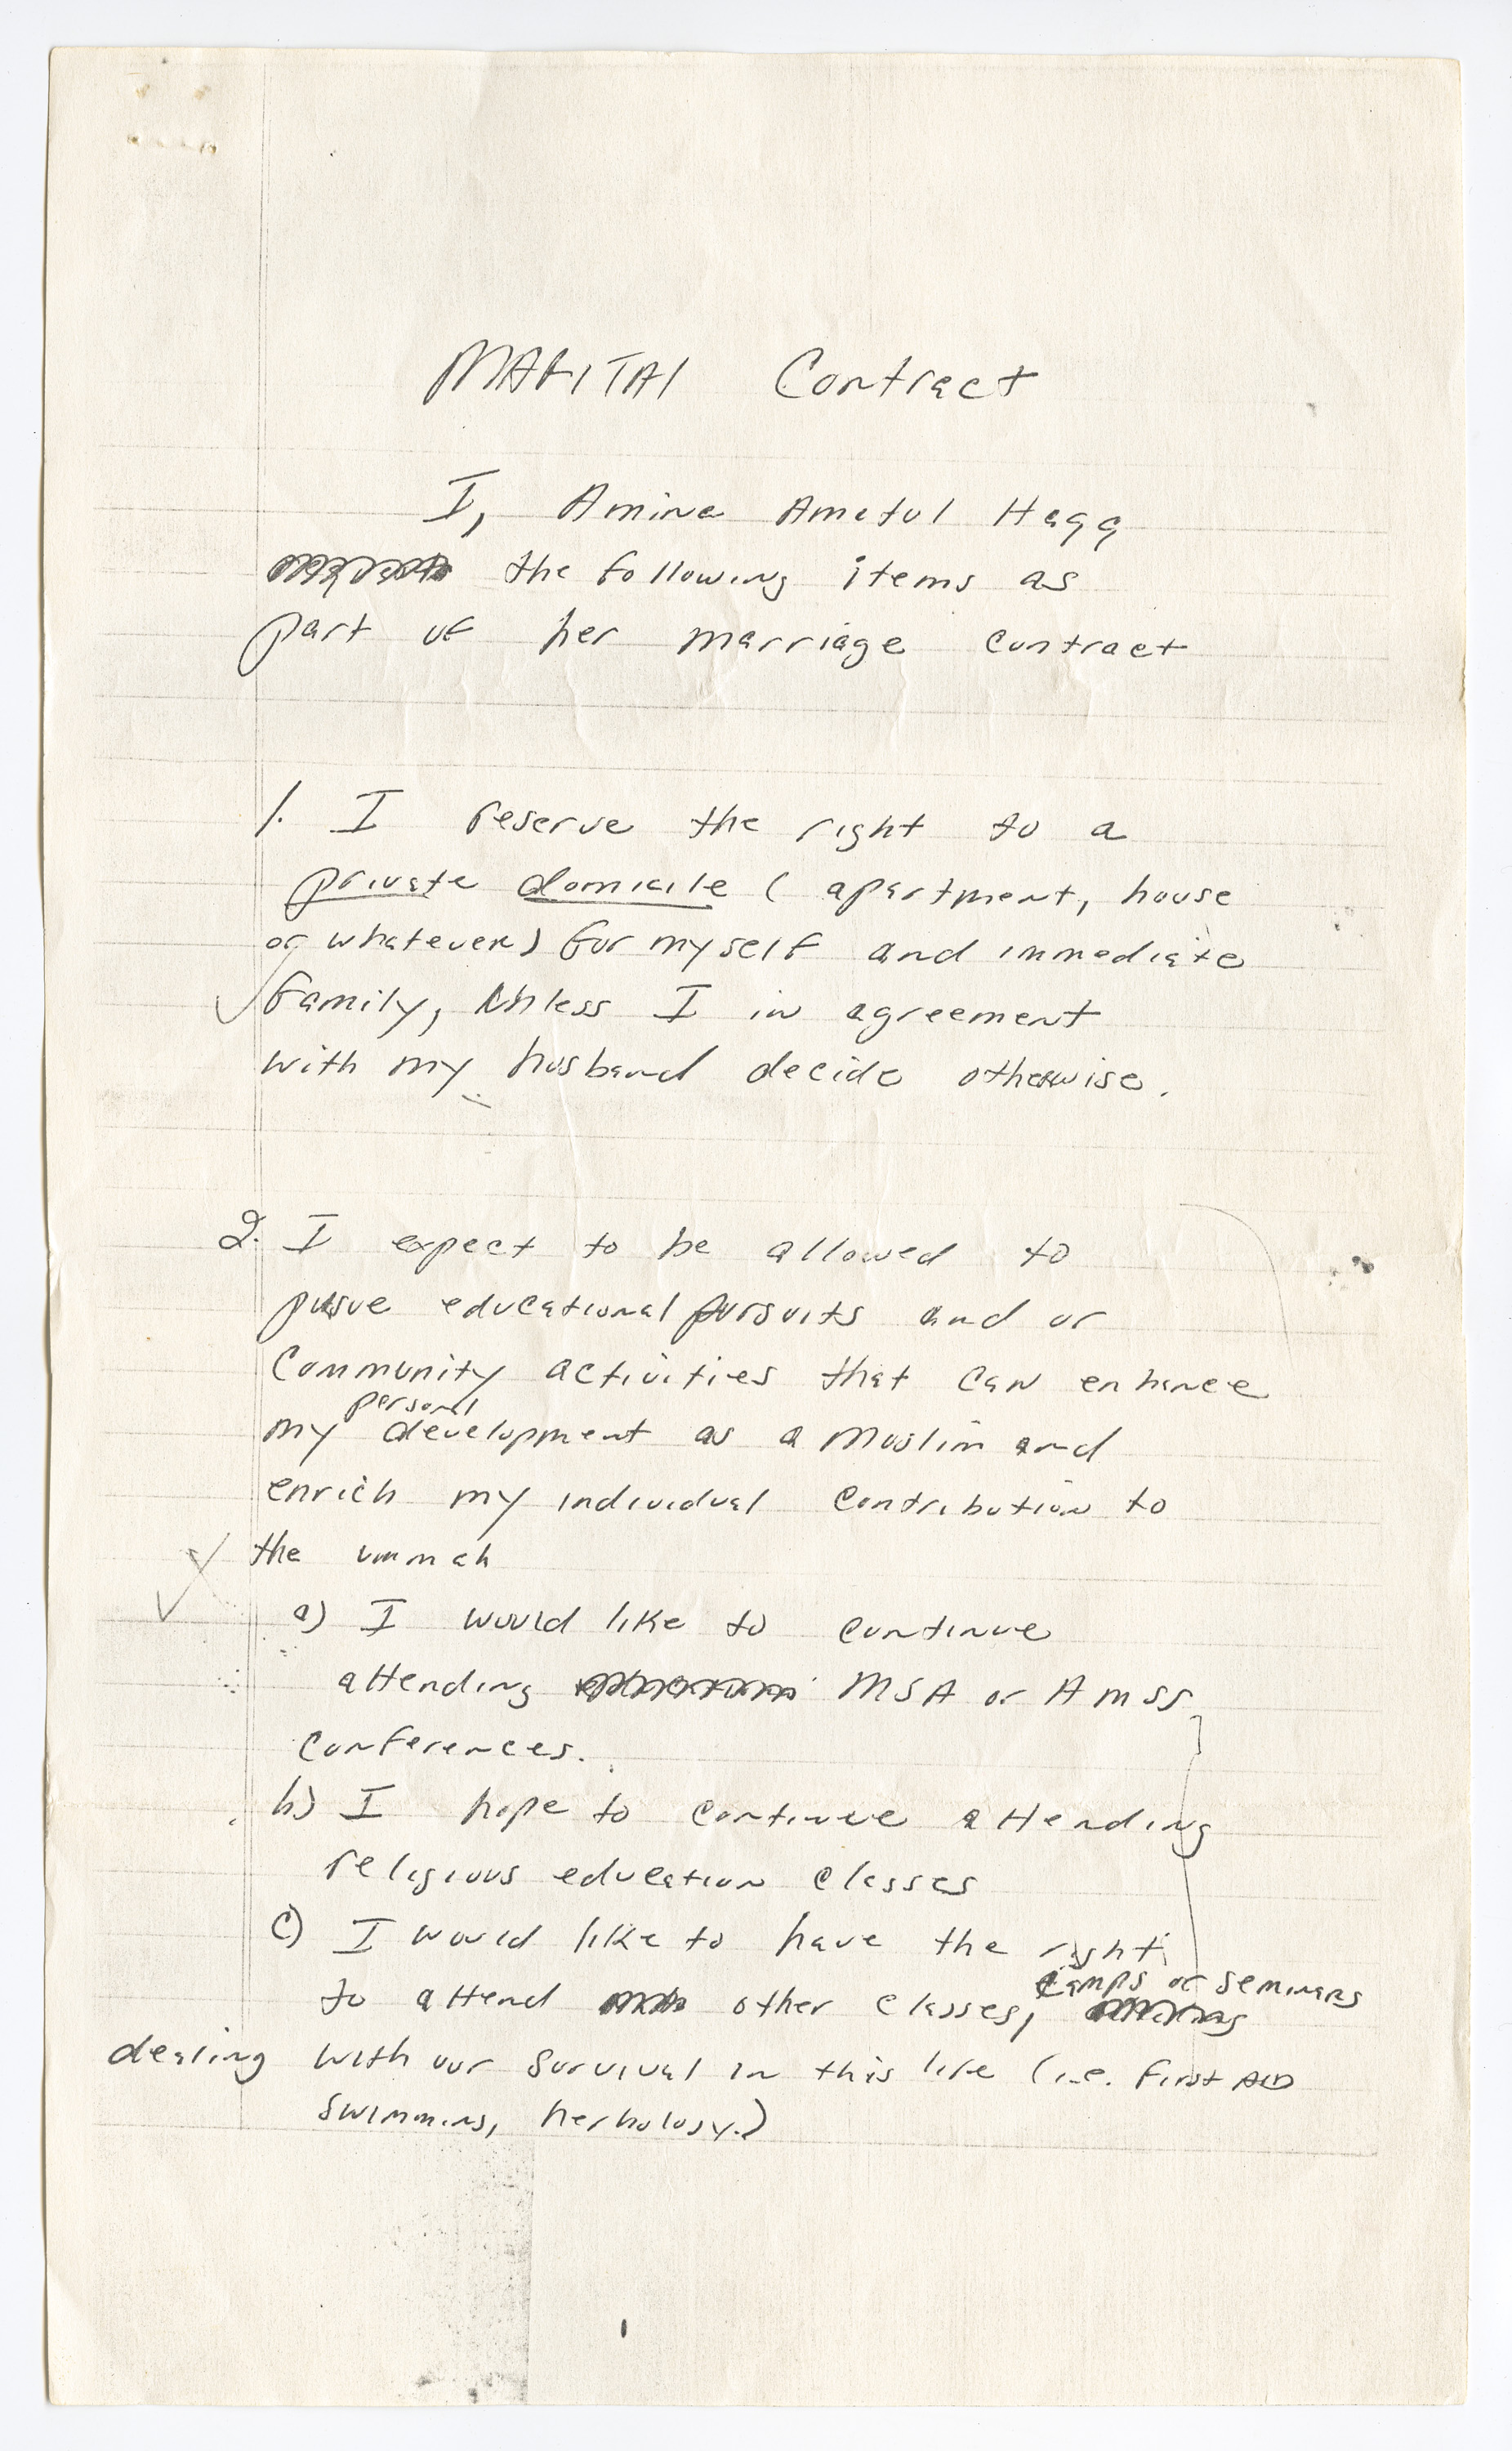 MARITAl Contract
I, Amina Amatul Haqq
the following items as
part of her marriage contract
1. I reserve the right to a
private domicile ( apartment, house
or whatever) for myself and immediate
family, Unless I in agreement
with my husband decide otherwise.
2. I expect to be allowed to
pusue educational pursuits and or
Community activities that can enhance
my personal development as a Muslim and
enrich my individual contribution to
the ummah
a) I would like to continue
attending MSA or AMSS
conferences.
b) I hope to continue attending
religious education classes
c) I would like to have the right
to attend other classes, camps or seminars
dealing with our survival in this life (i.e. first AID
swimming, herbology.)
1